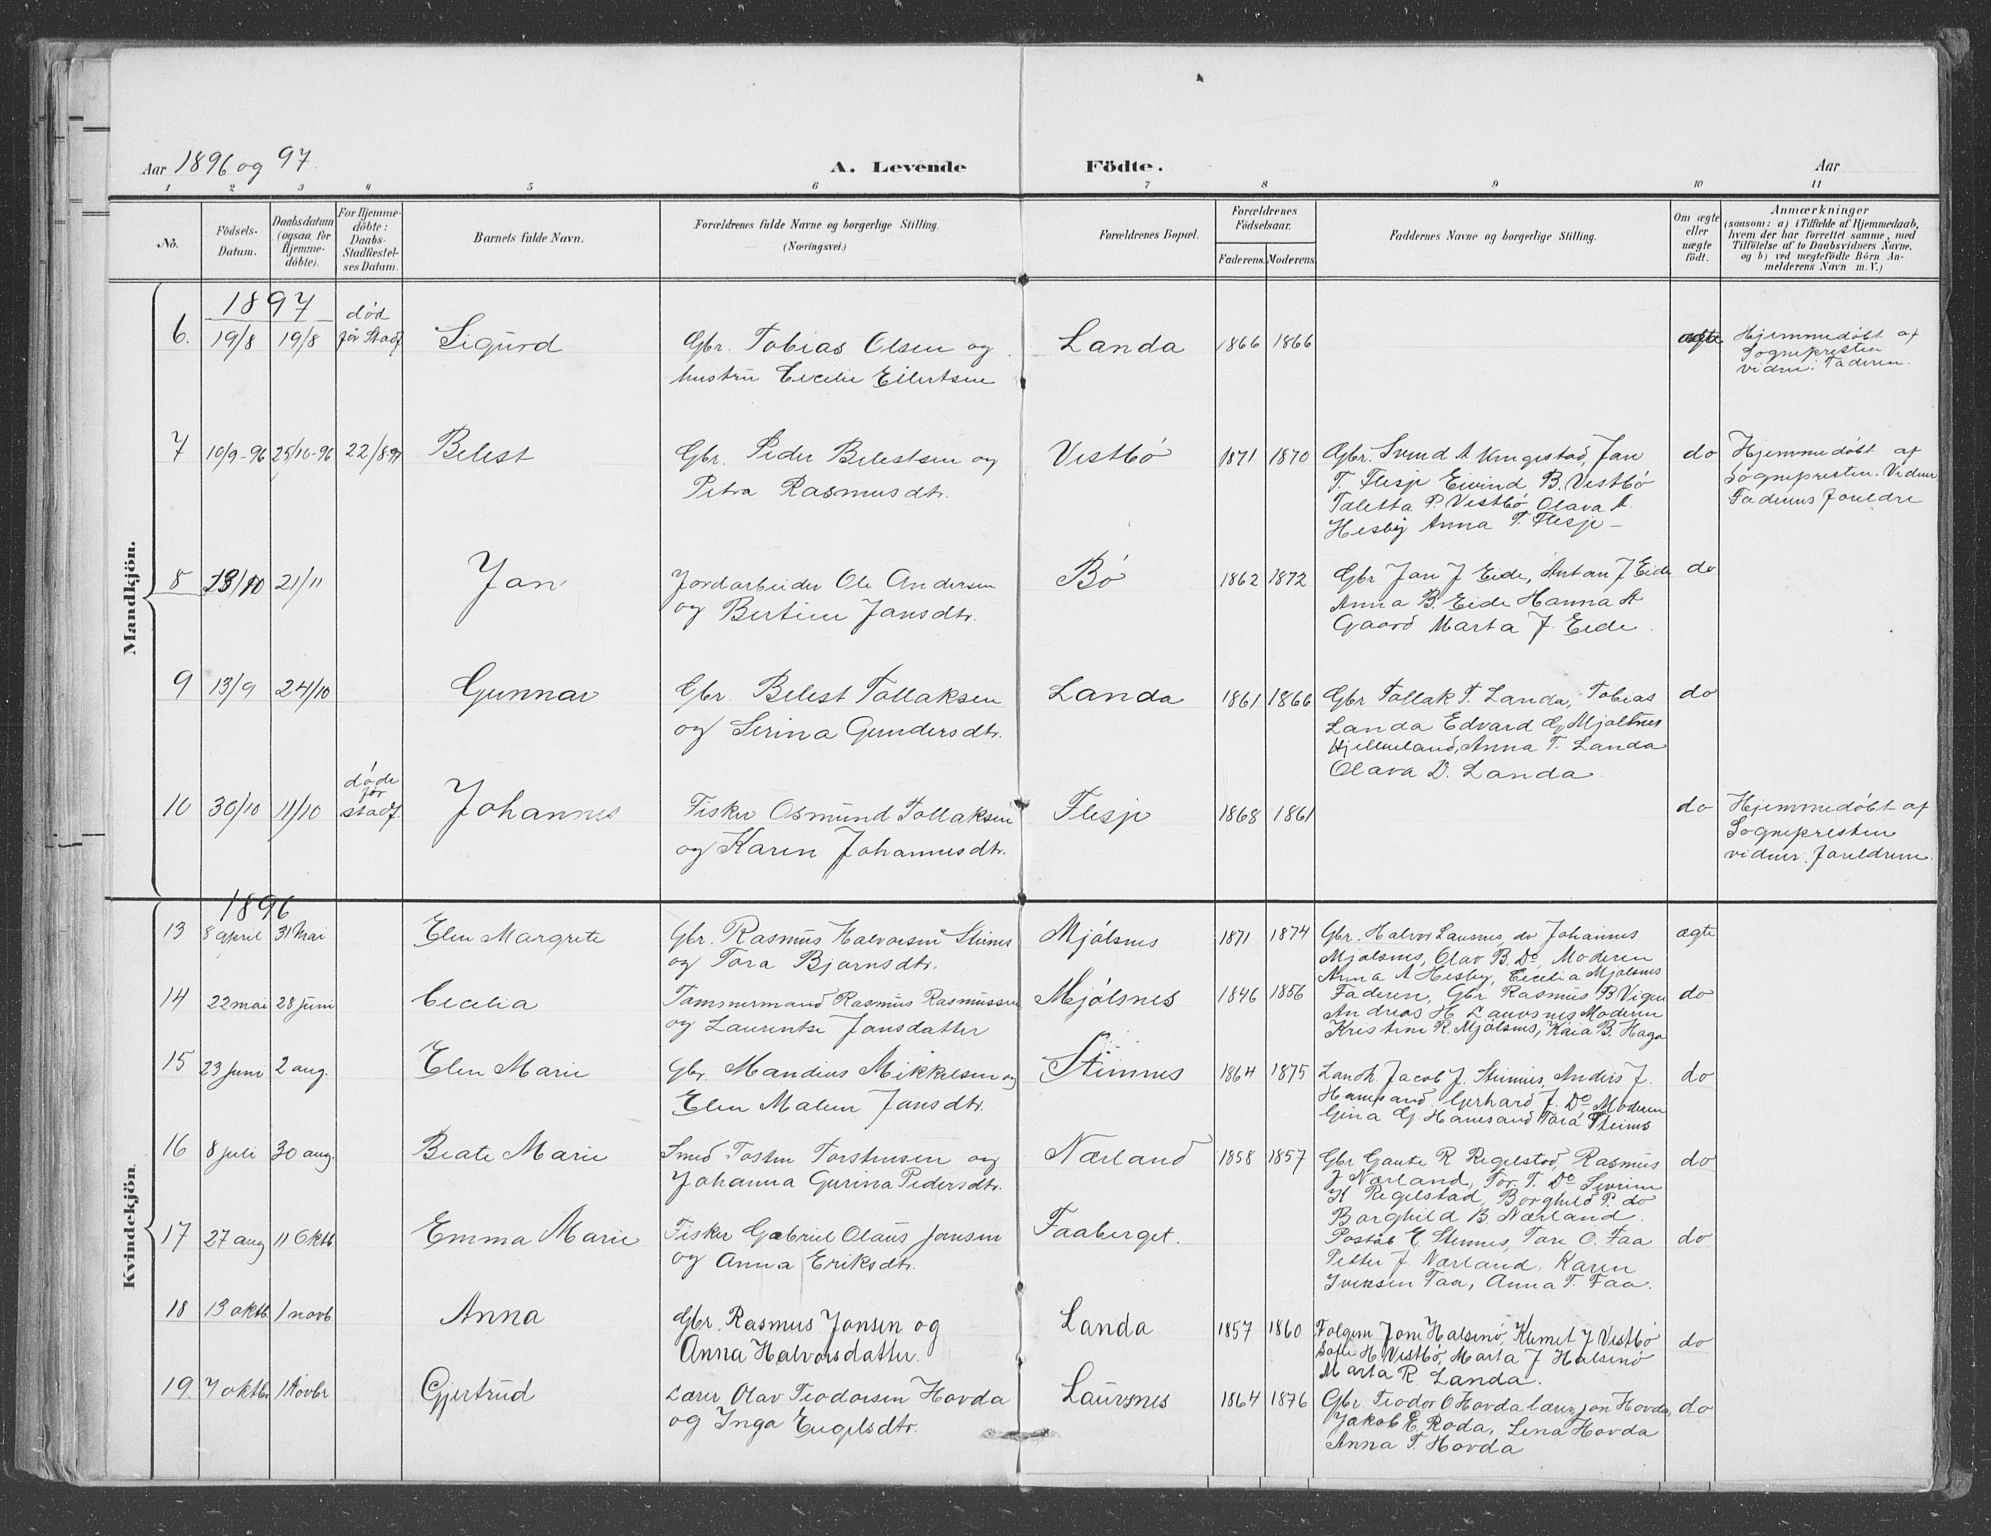 Aar 1896 og 97. A. Levende Födte. Aar
1 2 3 4 5 6 7 8 9 10 11
No.
Födsels-Datum.
Daabsdatum (ogsaa for Hjemmedöbte).
For Hjemmedöbte: Daabs-Stadfæstelses Datum.
Barnets fulde Navn.
Forældrenes fulde Navne og borgerlige Stilling.
(Næringsvei.)
Forældrenes Bopæl.
Forældrenes Födselsaar.
Faderens. Moderens.
Faddernes Navne og borgerlige Stilling.
Om ægte eller uægte födt.
Anmærkninger
(saasom: a) i Tilfælde af Hjemmedaab,
hvem der har forrettet samme, med
Tilföielse af to Daabsvidners Navne,
og b) ved uægtefödte Börn An-
melderens Navn m. V.)
Mandkjön.
1897
6. 19/8 19/8 død før Stadf. Sigurd
Gbr. Tobias Olsen og
hustru Cecilie Eilertsen
Landa 1866 1866 ægte
Hjemmedøbt af
Sognepresten
vidne: Faderen.
7 10/9-96 25/10-96 22/8 97 Belest
Gbr. Peder Belestsen og
Petra Rasmusdtr.
Vestbö 1871 1870
Gbr. Svend A Kingestad, Jan
T. Flesje Eivind B. Vestbö
Taletta P. Vestbö, Olava A
Hesby Anna T. Flesje
do
Hjemmedøbt af
Sognepresten. Vidner
Faderens Foreldre
8 13/10 21/11 Jan
Jordarbeider Ole Andersen
og Bertine Jansdtr.
Bö 1862 1872
Gbr Jan J Eide, Antan J Eide
Anna B. Eide Hanna A
Gaard Marta J. Eide.
do
9 13/9 24/10 Gunnar
Gbr. Belest Tollaksen
og Serina Gundersdtr.
Landa 1861 1866
Gbr Tollak T. Landa, Tobias
Landa Edvard G. Mjølsnes
Hjelleland, Anna T. Landa
Olava D. Landa.
do
10 30/10 11/10 døde før stadf. Johannes
Fisker Osmund Tollaksen
og Karen Johannesdtr.
Flesje 1868 1861 do
Hjemmedøbt af
Sognepresten
vidner. Foreldrene.
Kvindekjön.
1896
13 8 april 31 Mai Elen Margrete
Gbr. Rasmus Halvorsen Steines
og Tora Bjørnsdtr.
Mjølsnes 1871 1874
Gbr. Halvor Lausnes, do Johannes
Mjølsnes, Olav B. Do, Moderen
Anna A Hesby, Cecilia Mjølsnes
ægte
14 22 mai 28 juni Cecilia
Tømmermand Rasmus Rasmussen
og Laurentse Jansdatter
Mjölsnes 1846 1856
Faderen, Gbr. Rasmus B Vigen
Andreas H. Lauvsnes Moderen
Kristine R. Mjølsnes, Kaia B. Haga
do
15 23 juni 2 aug. Elen Marie
Gbr. Mandius Mikkelsen og
Elen Malen Jansdtr.
Steinnes 1864 1875
Landh. Jacob J. Steinnes, Anders J.
Hanesand. Gerhard J. Do Moderen
Gina G Hanesand Tora Steines
do
16 8 juli 30 aug. Beate Marie
Smed Tosten Torstensen og
Johanna Gurina Pedersdtr.
Nærland 1858 1857
Gbr Gaute R Regelstad, Rasmus
J Nærland, Tor. T. Do Severine
K Regelstad, Borghild P. do
Borghild B. Nærland.
do
17 27 aug 11 Oktb Emma Marie
Fisker Gabriel Olaus Jansen
og Anna Eriksdtr.
Faaberget.
Postab E. Steinnes, Tore O. Faa
Petter J. Nærland, Karen
Iversen Faa, Anna T. Faa.
do
18 13 oktb. 1 novb. Anna
Gbr. Rasmus Jansen og
Anna Halvorsdatter.
Landa 1857 1860
Jone Halsenö, Kemet J Vestbö
Sofie H. Vestbö, Marta J Halsenö
Marta R. Landa.
do
19. 7 oktbr 1 Novbr Gjertrud
Lærer Olav Teodorsen Hovda
og Inga Engelsdtr.
Lauvsnes 1864 1876
Gbr. Teodor O Hovda Jon Hovda,
Jakob E. Roda, Lena Hovda
Anna T. Hovda
do